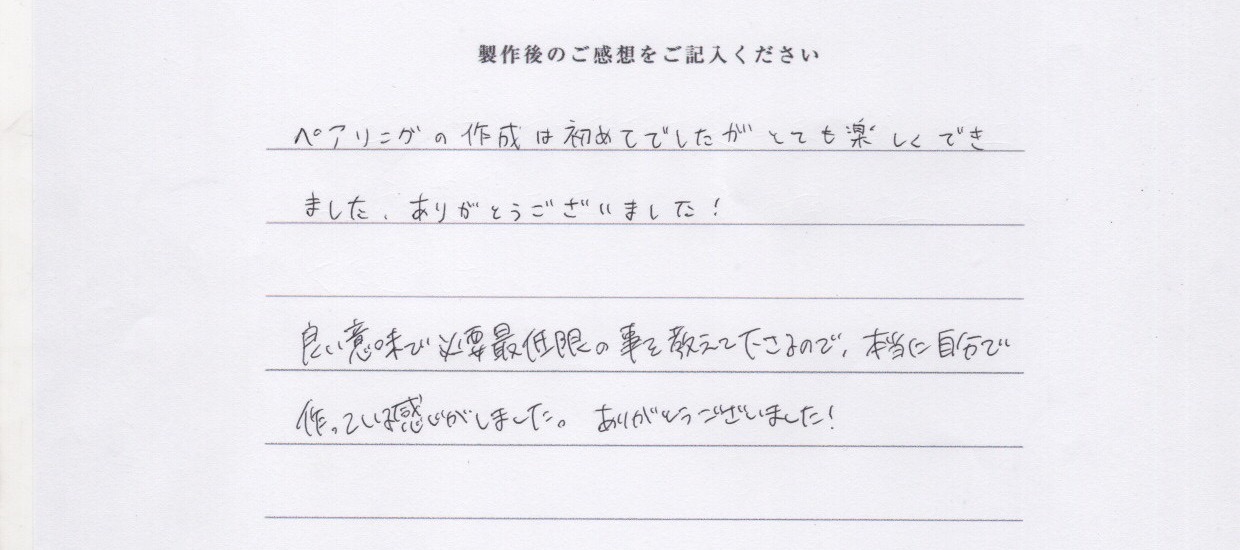 製作後のご感想をご記入ください
ペアリングの作成は初めてでしたがとても楽しくでき
ました。ありがとうございました！
良い意味で必要最低限の事を教えて下さるので、本当に自分で
作っている感じがしました。ありがとうございました！